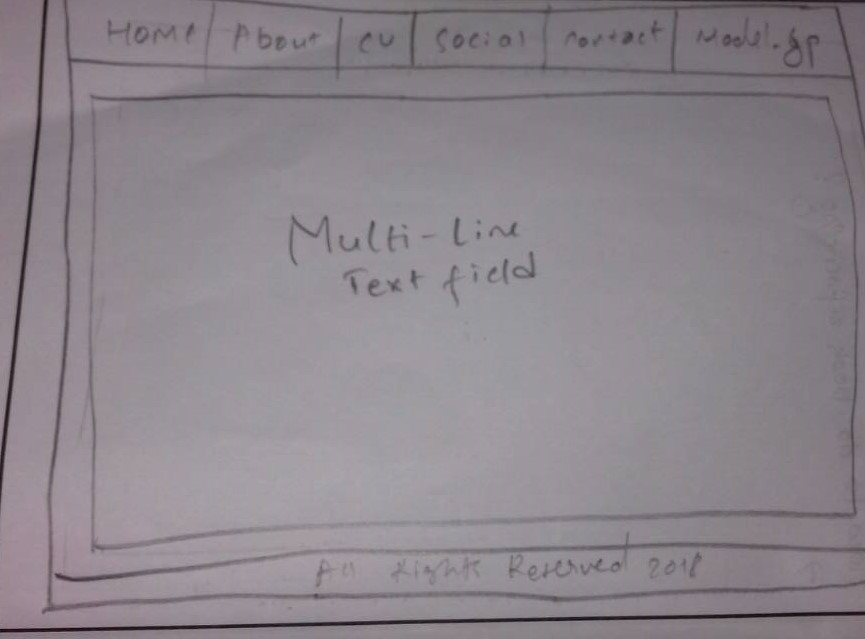 Home About CV Social Contact Model.gp
Multi-Line
Text field
All Rights Reserved 2018